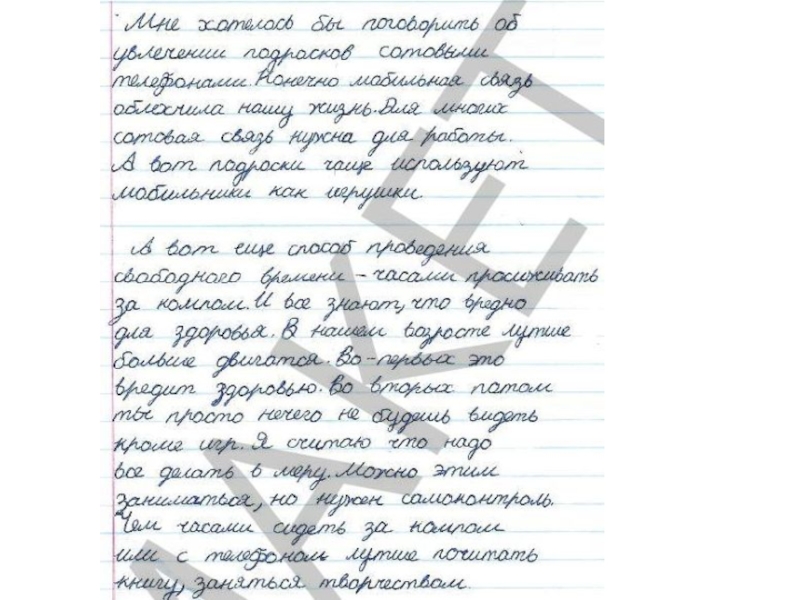 Мне хотелось бы поговорить об
увлечении подросков сотовыми
телефонами. Конечно мобильная связь
облехчила нашу жизнь. Для многих
сотовая связь нужна для работы.
А вот подроски чаще используют
мобильники как игрушки.
А вот еще способ проведения
свободного времени – часами просиживать
за компом. И все знают, что вредно
для здоровья. В нашем возросте лутше
больше двигатся. Во-первых это
вредит здоровью. Во вторых потом
ты просто нечего не будешь видеть
кроме игр. Я считаю что надо
все делать в меру. Можно этим
заниматься, но нужен самоконтроль.
Чем часами сидеть за компом
или с телефоном лутше почитать
книгу, заняться творчеством.
МАКЕТ